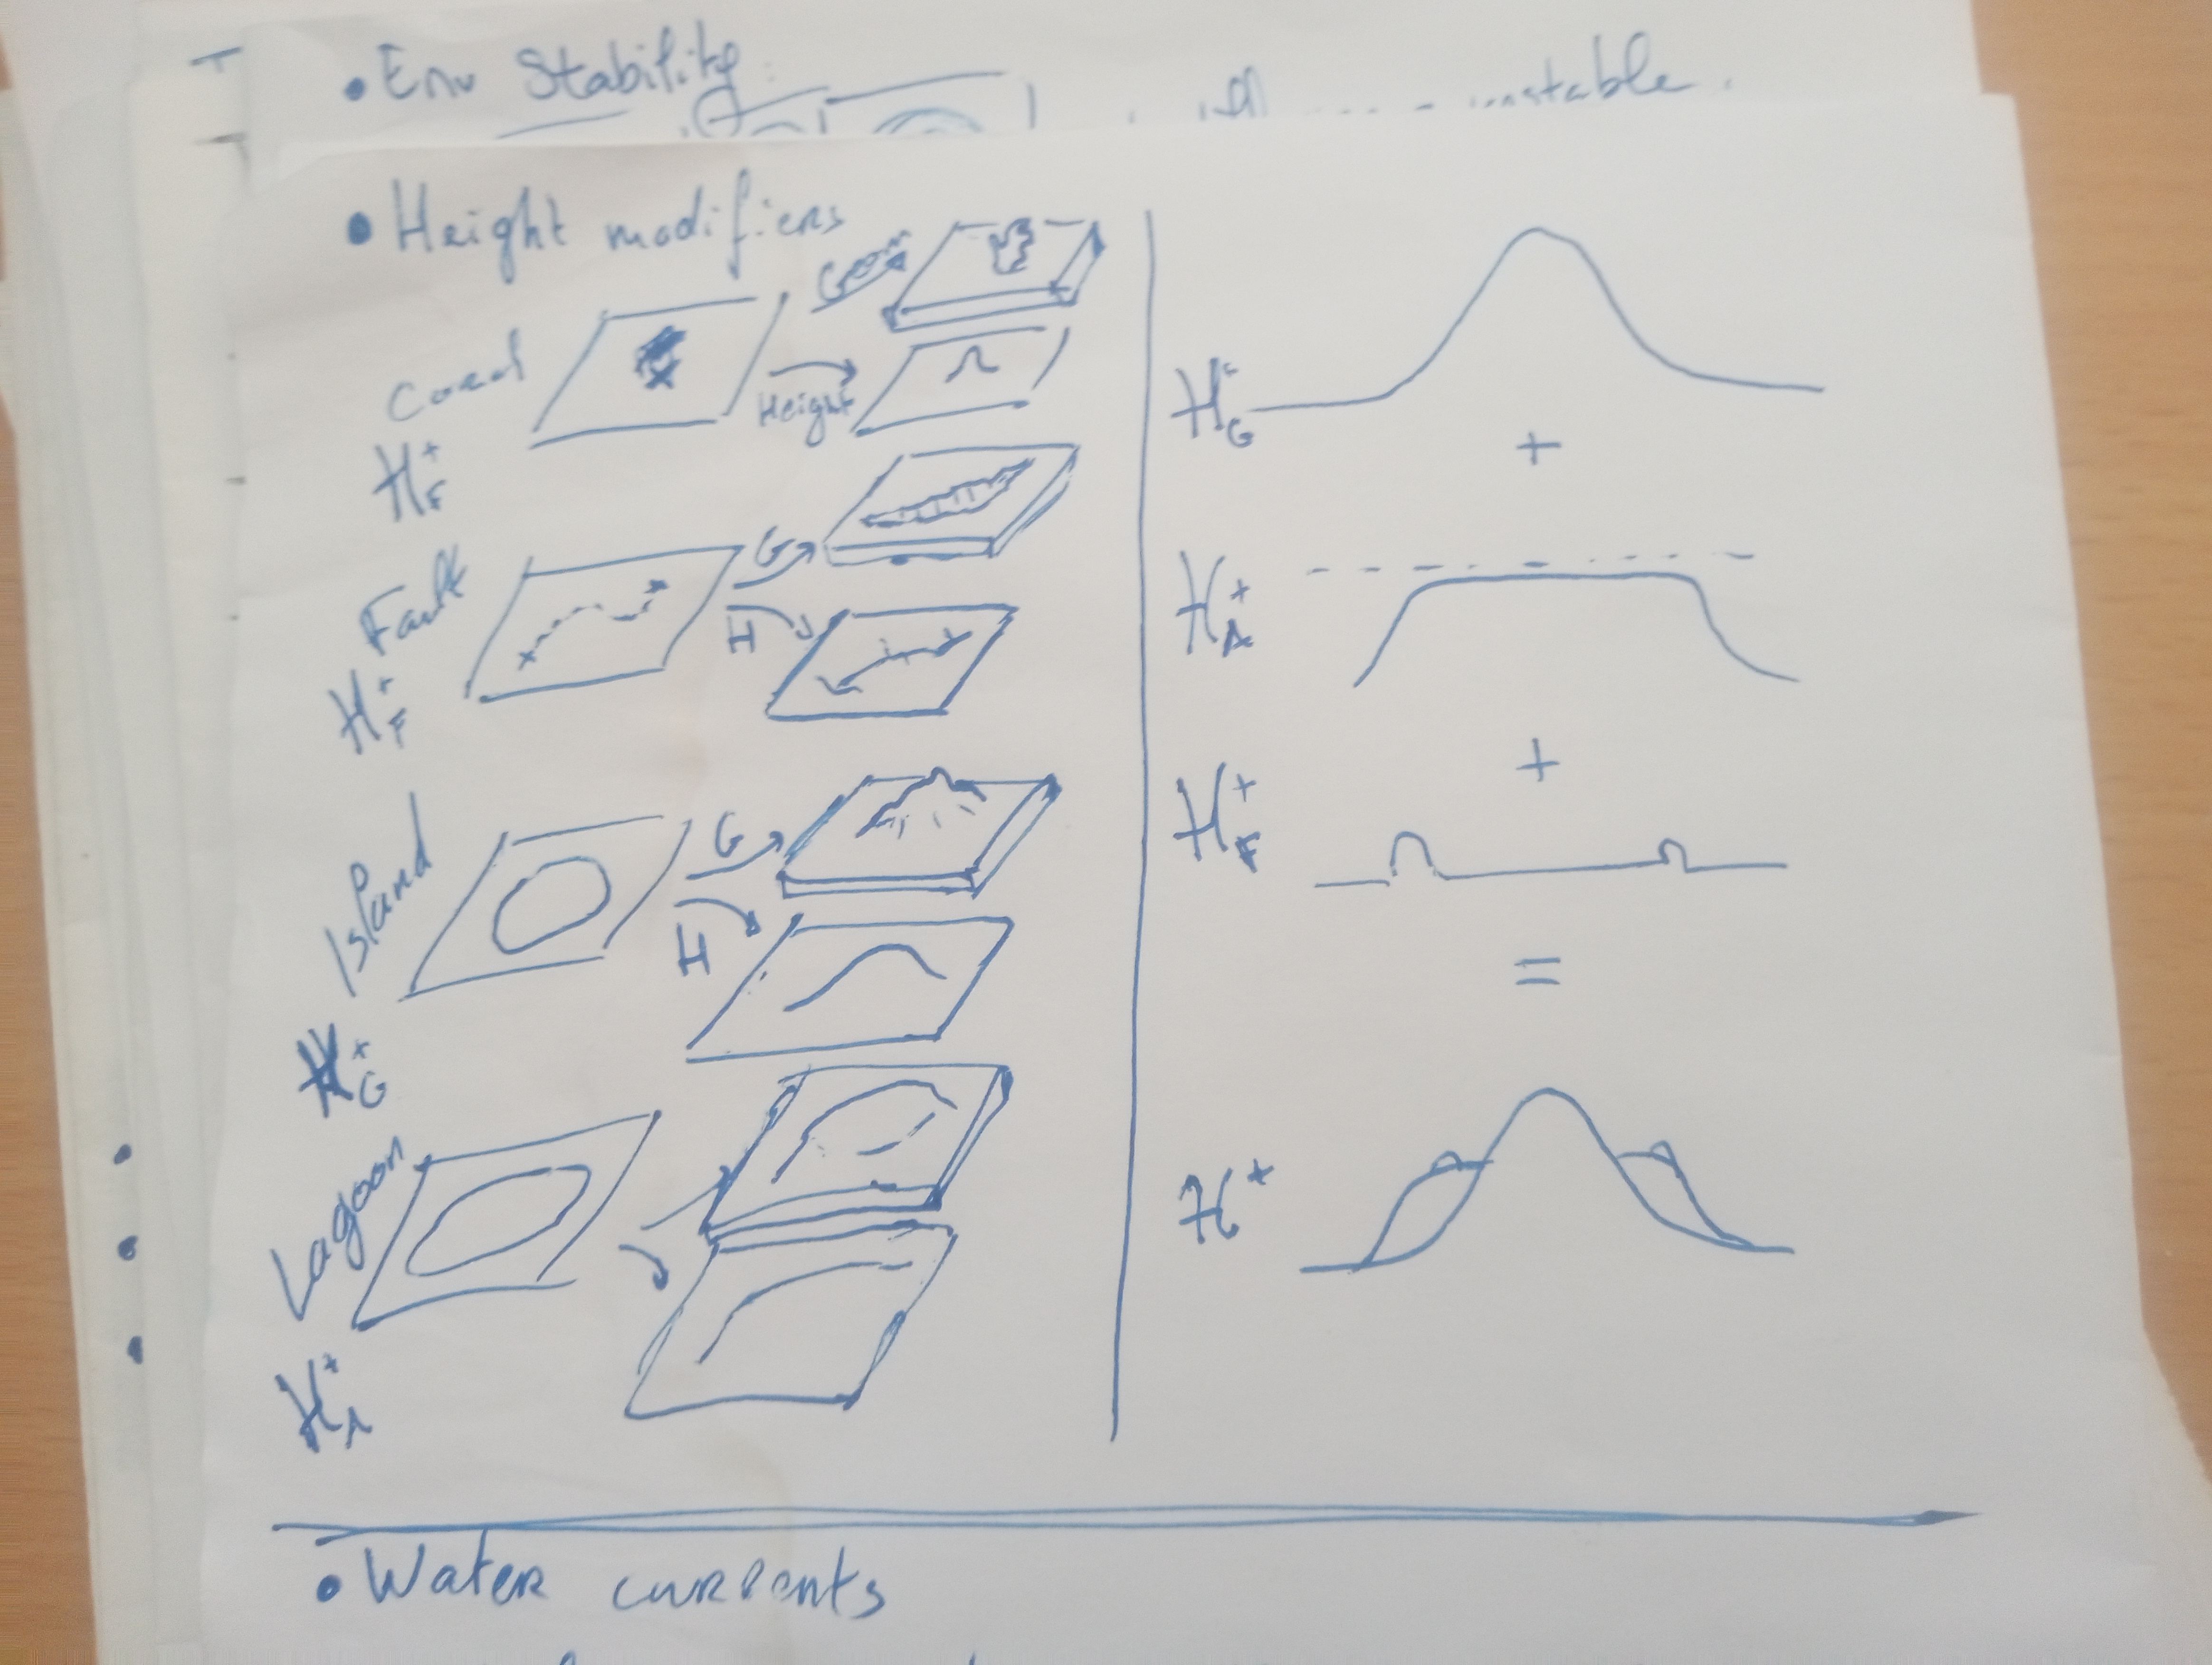 • Env Stability:
unstable
• Height modifiers
Coral
Height
Geom
H*F
Fault
G
H
H*F
Island
G
H
H*G
Lagoon
H*A
H*G
+
H*A
+
H*F
=
H*
• Water currents